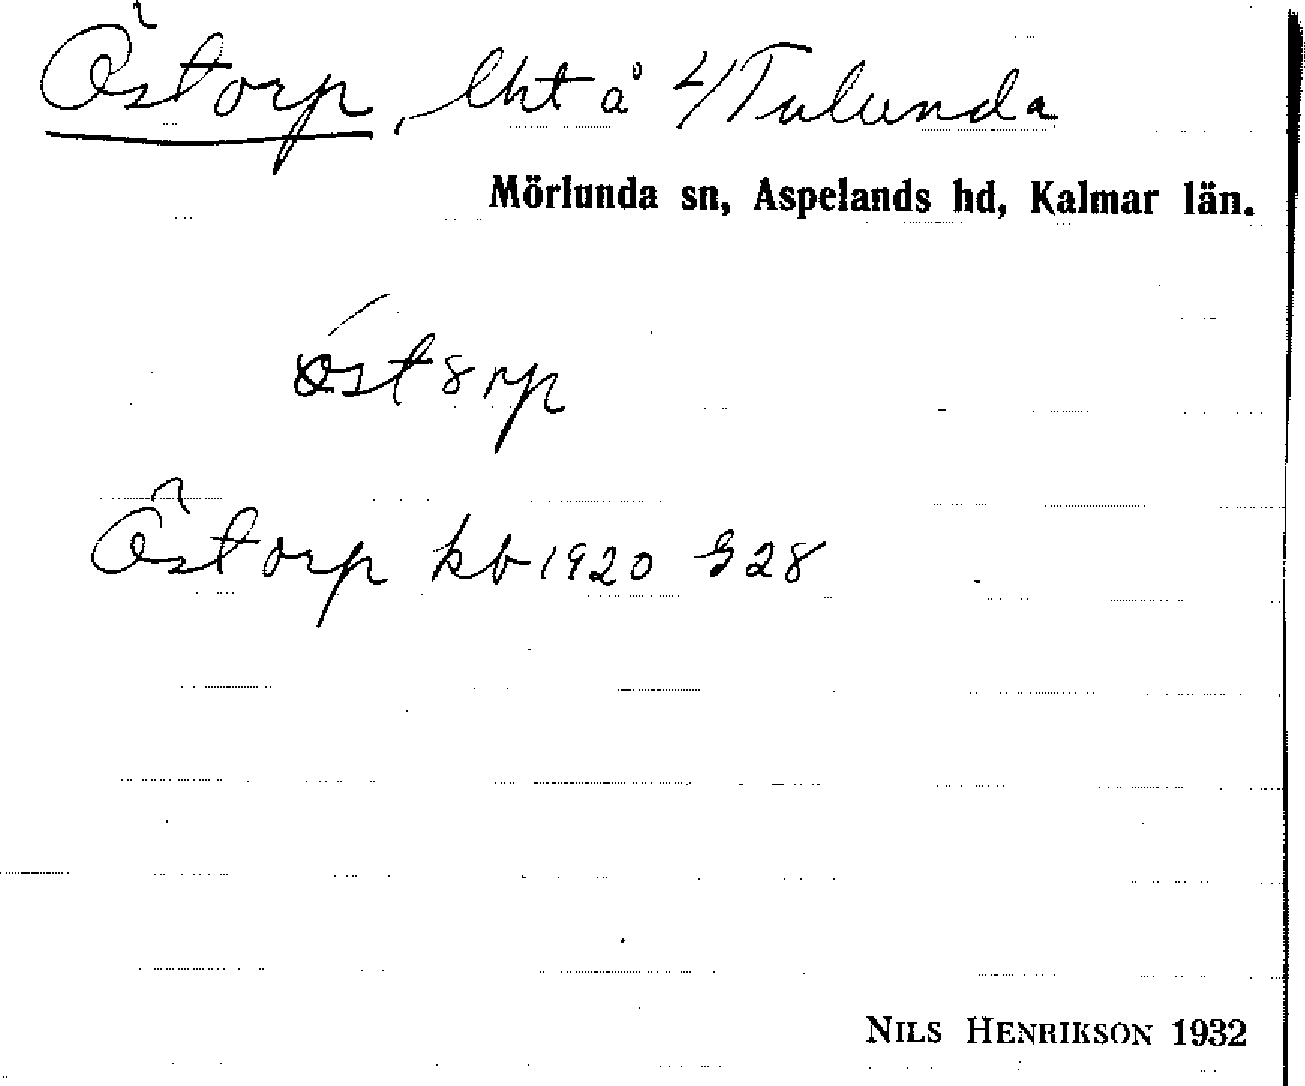 Östorp, lht å L/Tulunda
Mörlunda sn, Aspelands hd, Kalmar län.
östorp
Östorp kb 1920 S 28
NILS HENRIKSON 1932